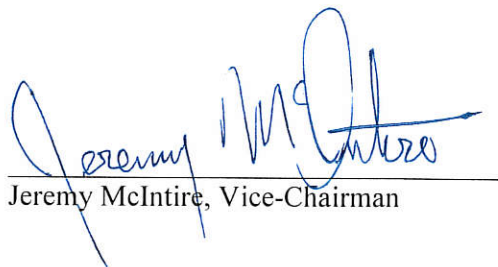 Jeremy McIntire
Jeremy McIntire, Vice-Chairman